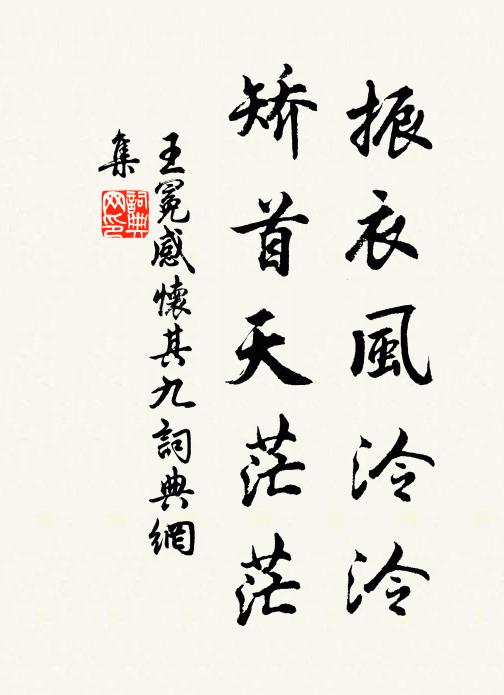 振衣風泠泠
矯首天茫茫
王冕感懷其九詞典網
集
詞典网印